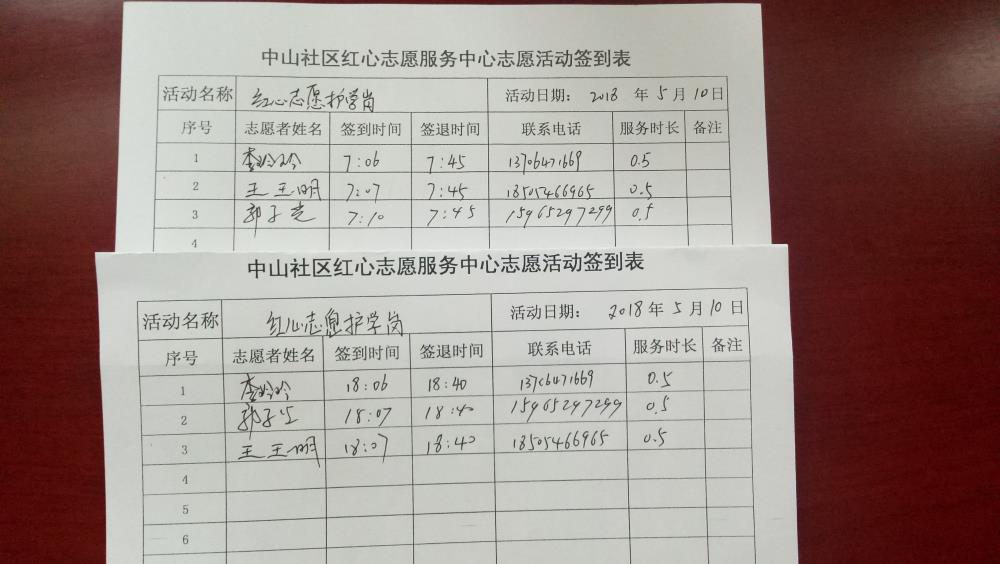 中山社区红心志愿服务中心志愿活动签到表
活动名称 红心志愿护学岗 活动日期： 2018 年 5 月 10 日
序号 志愿者姓名 签到时间 签退时间 联系电话 服务时长 备注
1 李玲玲 7:06 7:45 13706471669 0.5
2 王玉明 7:07 7:45 18505466965 0.5
3 郭子光 7:10 7:45 15965297299 0.5
4
中山社区红心志愿服务中心志愿活动签到表
活动名称 红心志愿护学岗 活动日期： 2018 年 5 月 10 日
序号 志愿者姓名 签到时间 签退时间 联系电话 服务时长 备注
1 李玲玲 18:06 18:40 13706471669 0.5
2 郭子光 18:07 18:40 15965297299 0.5
3 王玉明 18:07 18:40 18505466965 0.5
4
5
6